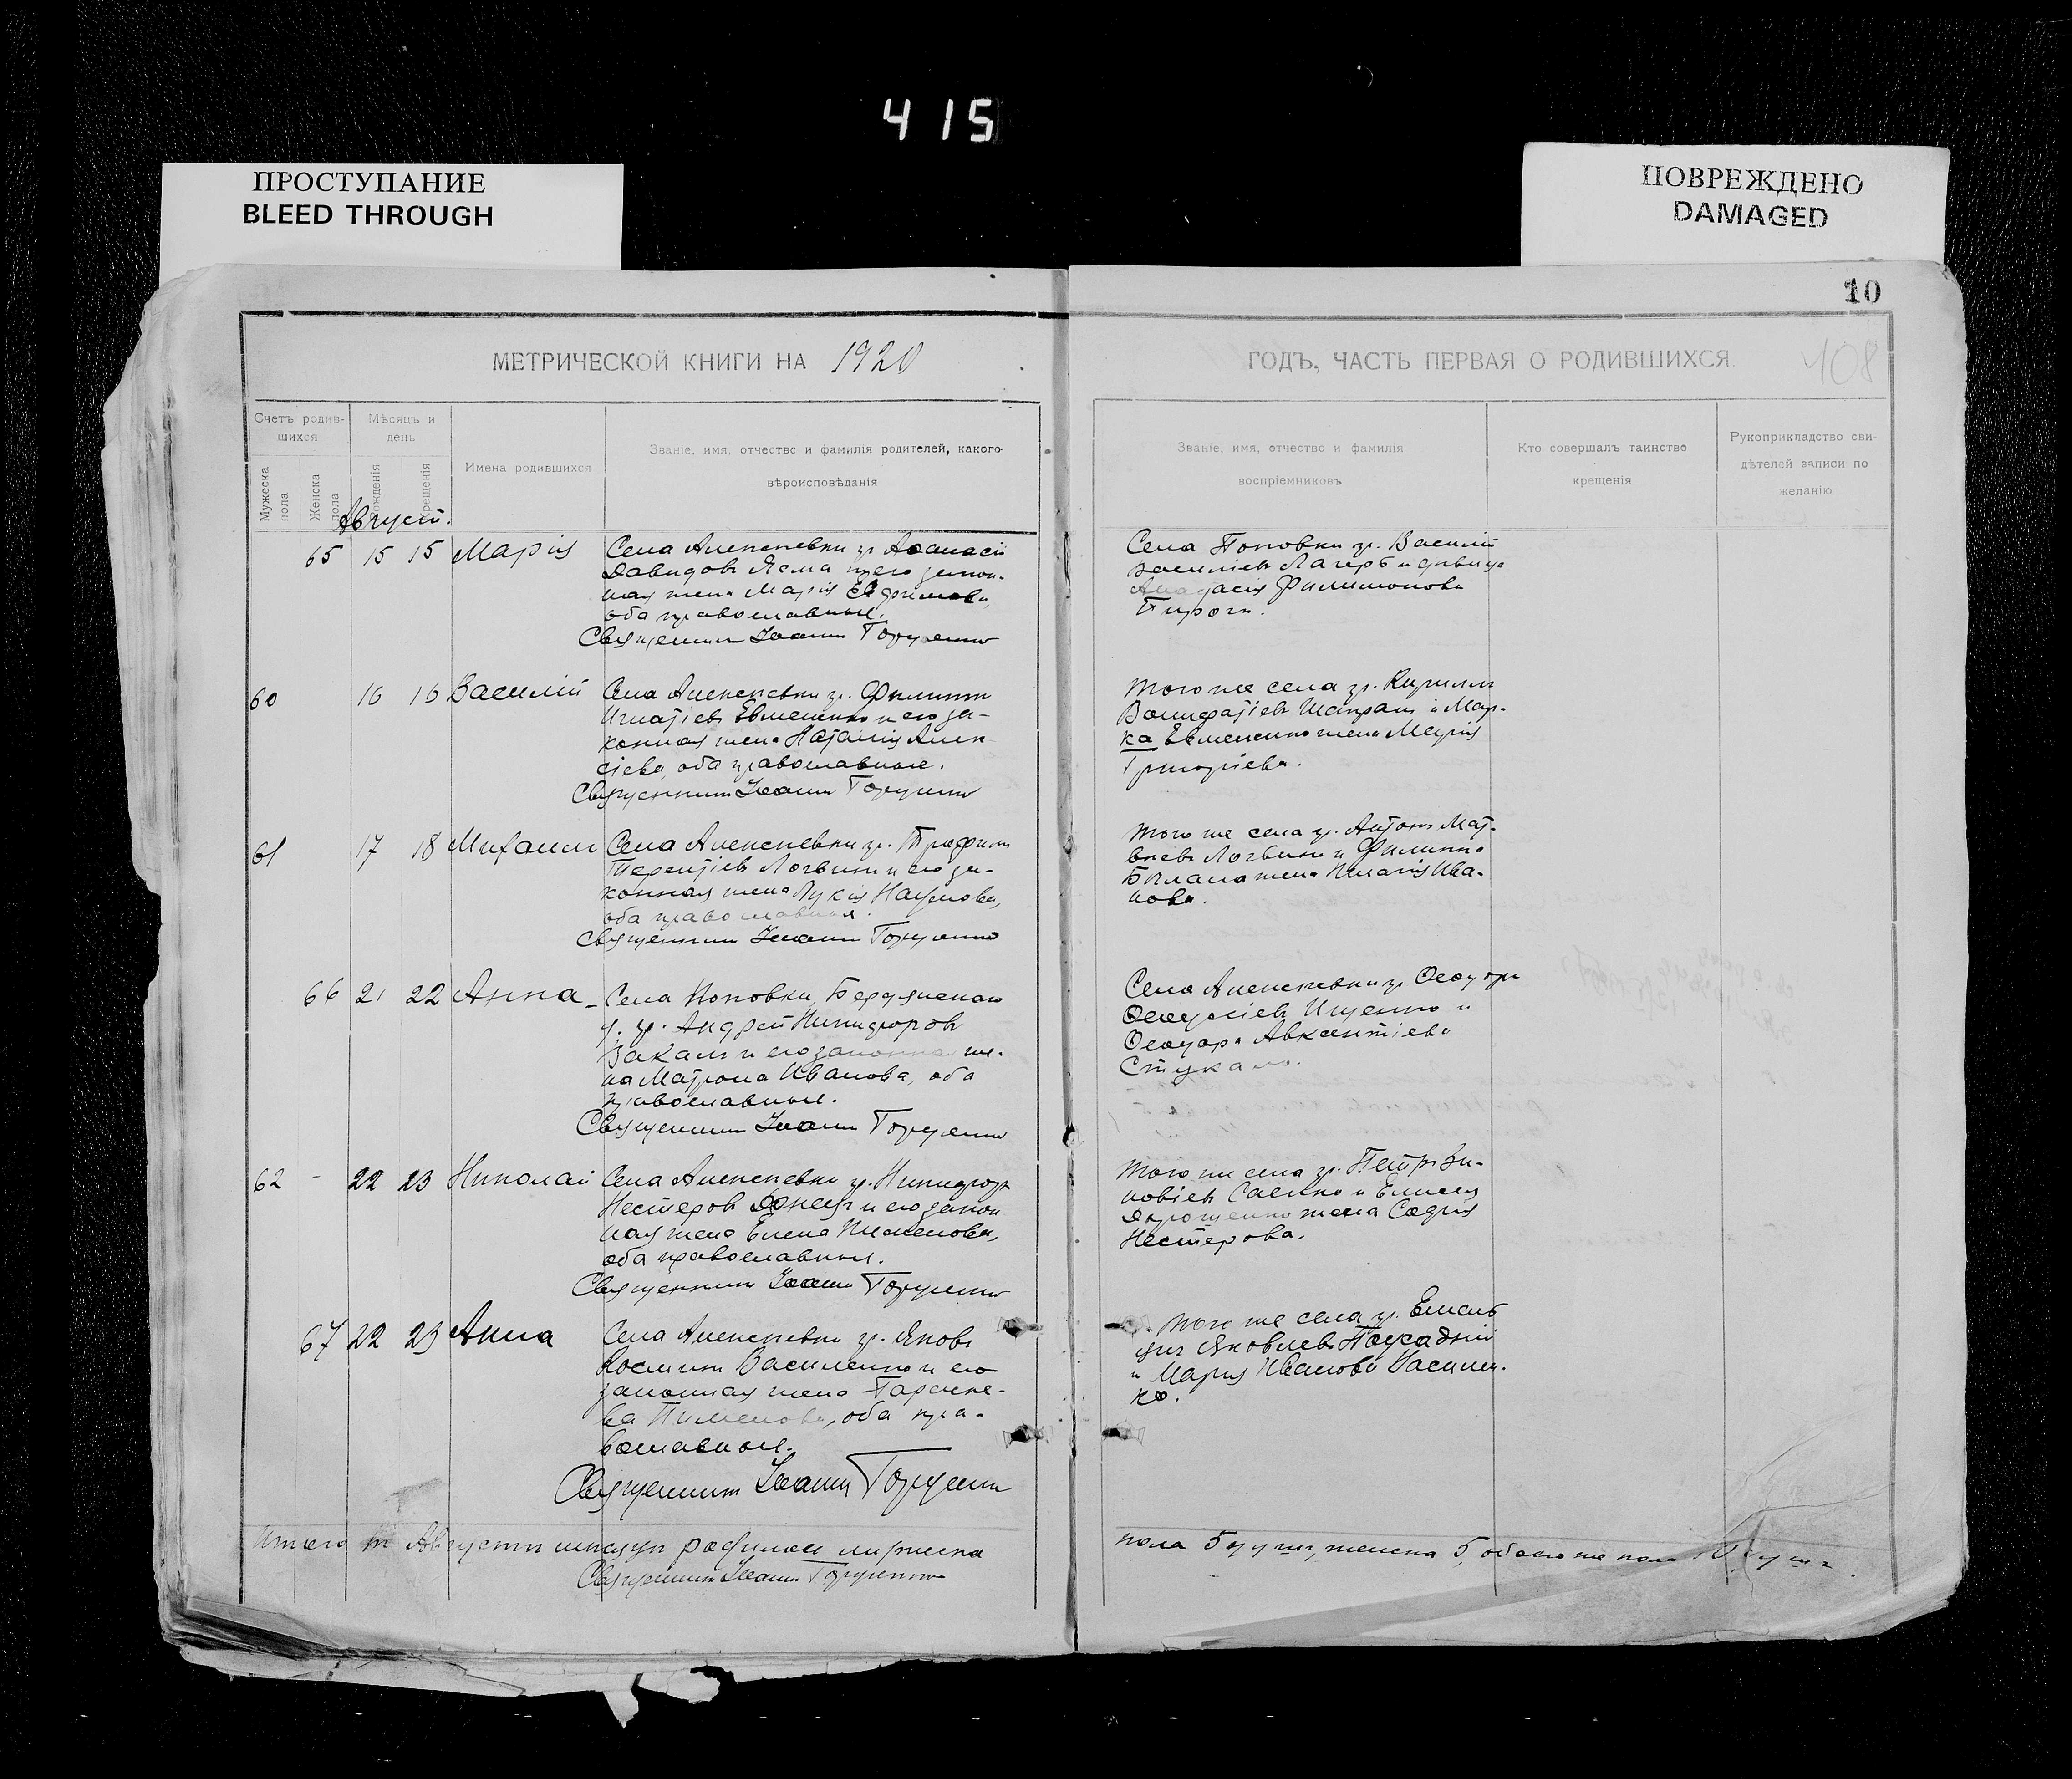 415
ПРОСТУПАНИЕ
BLEED THROUGH
ПОВРЕЖДЕНО
DAMAGED
10
МЕТРИЧЕСКОЙ КНИГИ НА 1920
ГОДЪ, ЧАСТЬ ПЕРВАЯ О РОДИВШИХСЯ.
408
Счетъ родив-
шихся
Мѣсяцъ и
день
Имена родившихся
Званіе, имя, отчество и фамилія родителей, какого-
вѣроисповѣданія
Мужеска пола
Женска пола
Рожденія
Крещенія
Званіе, имя, отчество и фамилія
воспріемниковъ
Кто совершалъ таинство
крещенія
Рукоприкладство сви-
дѣтелей записи по
желанію
Август.
65 15 15 Марія Села Алексеевки гр. Афанасій
Давидовъ и его закон-
ная жена Марія
оба православные.
Священник Іоанн
Села Поповки гр. Василій
Васильев и дѣвица
Филимонова
60 16 16 Василій Села Алексеевки гр. Филипп
Игнатіев Евмененко и его за-
конная жена Наталія Алек-
сіева, оба православные.
Священник Іоанн
того же села гр. Кирилл
Вонифатіев и Мар-
ка Евмененко жена Марія
Григоріева.
61 17 18 Михаил Села Алексеевки гр. Трофим
Терентіев Логвин и его за-
конная жена Лукія Наумова,
оба православные.
Священник Іоанн
того же села гр. Антон Мат-
веев Логвин и Филиппа
жена Пелагія Ива-
нова.
66 21 22 Анна Села Поповки, Бердянскаго
у. гр. Андрей Никифоров
и его законная же-
на Матрона Иванова, оба
православные.
Священник Іоанн
Села Алексеевки гр. Ѳеодор
Ѳеодосіев Ищенко и
Ѳеодора Авксентіева
Стукало.
62 - 22 23 Николай Села Алексеевки гр. Никифор
Нестеров Донец и его закон
ная жена Елена Пименова,
оба православные.
Священник Іоанн
того же села гр. Петр Зи-
новіев Саенко и Елисея
жена Софія
Нестерова.
67 22 23 Анна Села Алексеевки гр. Яков
Косьмин Василенко и его
законная жена Параске-
ва Пименова, оба пра-
вославные.
Священник Іоанн
того же села гр. Емель
ян Яковлев
и Марія Иванова Василен-
ко.
Итого в Августе месяце родилось мужеска
пола 5 душ, женска 5, обоего же пола 10 душ.
Священник Іоанн